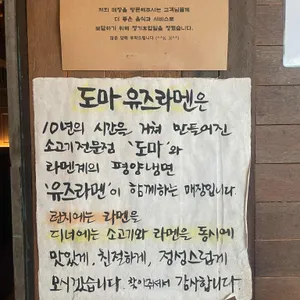 저희 매장을 방문해주시는 고객님들께
더 좋은 음식과 서비스로
보답하기 위해 정기휴일을 정했습니다.
도마 유즈라멘은
10년의 시간을 거쳐 만들어진
소고기전문점 '도마'와
라멘계의 평양냉면
'유즈라멘'이 함께하는 매장입니다.
런치에는 라멘을
디너에는 소고기와 라멘을 동시에
맛있게, 친절하게, 정성스럽게
모시겠습니다. 찾아주셔서 감사합니다.